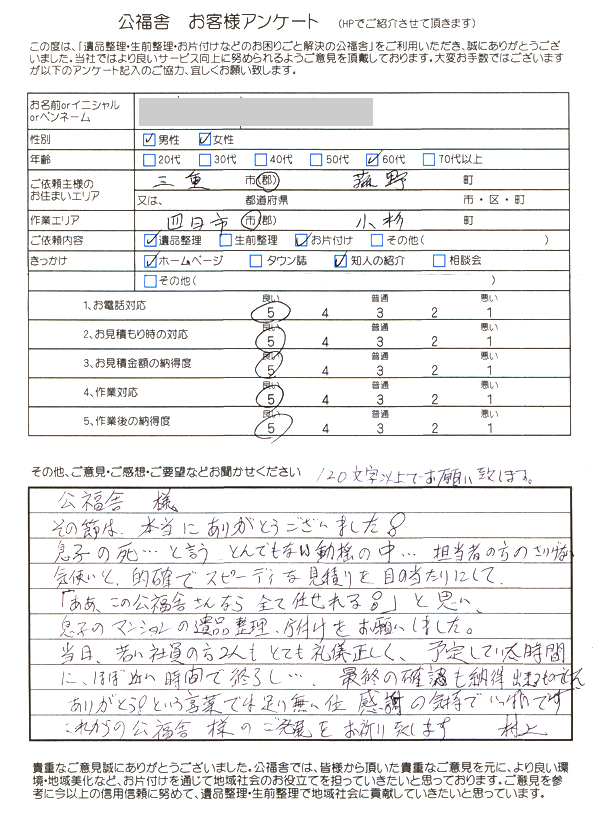 公福舎 お客様アンケート (HPでご紹介させて頂きます)
この度は、「遺品整理・生前整理・お片付けなどのお困りごと解決の公福舎」をご利用いただき、誠にありがとうござ
いました。当社ではより良いサービス向上に努められるようご意見を頂戴しております。大変お手数ではございます
が以下のアンケート記入のご協力、宜しくお願い致します。
お名前orイニシャル
orペンネーム
性別 男性 女性
年齢 20代 30代 40代 50代 60代 70代以上
ご依頼主様の
お住まいエリア
三重 市(郡) 菰野 町
又は、 都道府県 市・区・町
作業エリア 四日市 市(郡) 小杉 町
ご依頼内容 遺品整理 生前整理 お片付け その他( )
きっかけ ホームページ タウン誌 知人の紹介 相談会
その他( )
良い 普通 悪い
1、お電話対応 5 4 3 2 1
良い 普通 悪い
2、お見積もり時の対応 5 4 3 2 1
良い 普通 悪い
3、お見積金額の納得度 5 4 3 2 1
良い 普通 悪い
4、作業対応 5 4 3 2 1
良い 普通 悪い
5、作業後の納得度 5 4 3 2 1
その他、ご意見・ご感想・ご要望などお聞かせください 120文字以上でお願い致します。
公福舎 様
その節は、本当にありがとうございました!
息子の死…と言う とんでもない動揺の中… 担当者の方のさりげない
気使いと、的確でスピーディな見積りを目の当たりにして、
「ああ、この公福舎さんなら 全て任せれる!」と思い、
息子のマンションの遺品整理、片付けをお願いしました。
当日、若い社員の方2人も とても礼儀正しく、予定していた時間
に、ほぼ近い時間で終了し…、最終の確認も納得出来るものでした
ありがとう!という言葉では足り無い位 感謝の気持でいっぱいです
これからの公福舎 様の ご発展を お祈り致します 村上
貴重なご意見誠にありがとうございました。公福舎では、皆様から頂いた貴重なご意見を元に、より良い環
境・地域美化など、お片付けを通じて地域社会のお役立てを担っていきたいと思っております。ご意見を参
考に今以上の信用信頼に努めて、遺品整理・生前整理で地域社会に貢献していきたいと思っています。